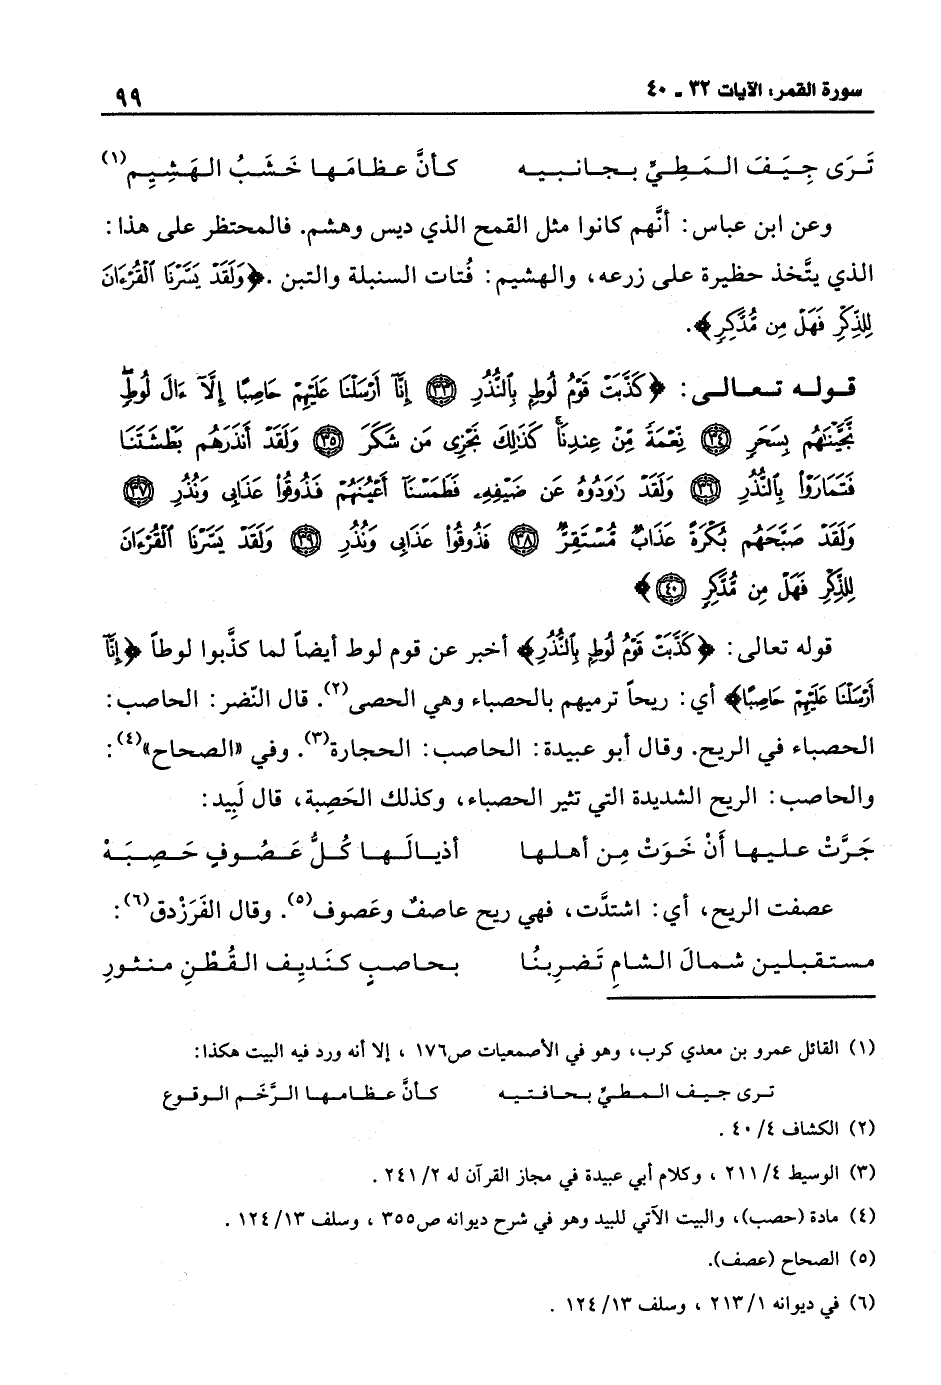 سورة القمر: الآيات ٣٢ - ٤٠
٩٩
تَرَى جِيَفَ المَطِيِّ بجانبيه كأنَّ عظامَها خَشَبُ الهَشِيِم(١)
وعن ابن عباس: أنَّهم كانوا مثل القمح الذي ديس وهشم. فالمحتظر على هذا:
الذي يتَّخذ حظيرة على زرعه، والهشيم: فُتات السنبلة والتبن. ﴿وَلَقَدْ يَسَّرْنَا ٱلْقُرْءَانَ
لِلذِّكْرِ فَهَلْ مِن مُّدَّكِرٍ﴾.
قوله تعالى: ﴿كَذَّبَتْ قَوْمُ لُوطٍۭ بِٱلنُّذُرِ ٣٣ إِنَّآ أَرْسَلْنَا عَلَيْهِمْ حَاصِبًا إِلَّآ ءَالَ لُوطٍۖ
نَّجَّيْنَٰهُم بِسَحَرٍ ٣٤ نِّعْمَةً مِّنْ عِندِنَاۚ كَذَٰلِكَ نَجْزِى مَن شَكَرَ ٣٥ وَلَقَدْ أَنذَرَهُم بَطْشَتَنَا
فَتَمَارَوْا۟ بِٱلنُّذُرِ ٣٦ وَلَقَدْ رَٰوَدُوهُ عَن ضَيْفِهِۦ فَطَمَسْنَآ أَعْيُنَهُمْ فَذُوقُوا۟ عَذَابِى وَنُذُرِ ٣٧
وَلَقَدْ صَبَّحَهُم بُكْرَةً عَذَابٌ مُّسْتَقِرٌّ ٣٨ فَذُوقُوا۟ عَذَابِى وَنُذُرِ ٣٩ وَلَقَدْ يَسَّرْنَا ٱلْقُرْءَانَ
لِلذِّكْرِ فَهَلْ مِن مُّدَّكِرٍ ٤٠﴾
قوله تعالى: ﴿كَذَّبَتْ قَوْمُ لُوطٍۭ بِٱلنُّذُرِ﴾ أخبر عن قوم لوط أيضاً لما كذَّبوا لوطاً ﴿إِنَّآ
أَرْسَلْنَا عَلَيْهِمْ حَاصِبًا﴾ أي: ريحاً ترميهم بالحصباء وهي الحصى(٢). قال النّضر: الحاصب:
الحصباء في الريح. وقال أبو عبيدة: الحاصب: الحجارة(٣). وفي «الصحاح»(٤):
والحاصب: الريح الشديدة التي تثير الحصباء، وكذلك الحَصِبة، قال لَبِيد:
جَرَّتْ عليها أنْ خَوَتْ مِن أهلها أذيالَها كُلُّ عَصُوفٍ حَصِبَهْ
عصفت الريح، أي: اشتدَّت، فهي ريح عاصفٌ وعَصوف(٥). وقال الفَرَزدق(٦):
مستقبلين شمالَ الشامِ تَضرِبنُا بحاصبٍ كنَديِف القُطْنِ منثورِ
(١) القائل عمرو بن معدي كرب، وهو في الأصمعيات ص١٧٦ ، إلا أنه ورد فيه البيت هكذا:
ترى جيف المطيِّ بحافتيه كأنَّ عظامها الرَّخَم الوقوع
(٢) الكشاف ٤٠/٤ .
(٣) الوسيط ٢١١/٤ ، وكلام أبي عبيدة في مجاز القرآن له ٢٤١/٢ .
(٤) مادة (حصب)، والبيت الآتي للبيد وهو في شرح ديوانه ص٣٥٥ ، وسلف ١٢٤/١٣ .
(٥) الصحاح (عصف).
(٦) في ديوانه ٢١٣/١ ، وسلف ١٢٤/١٣ .